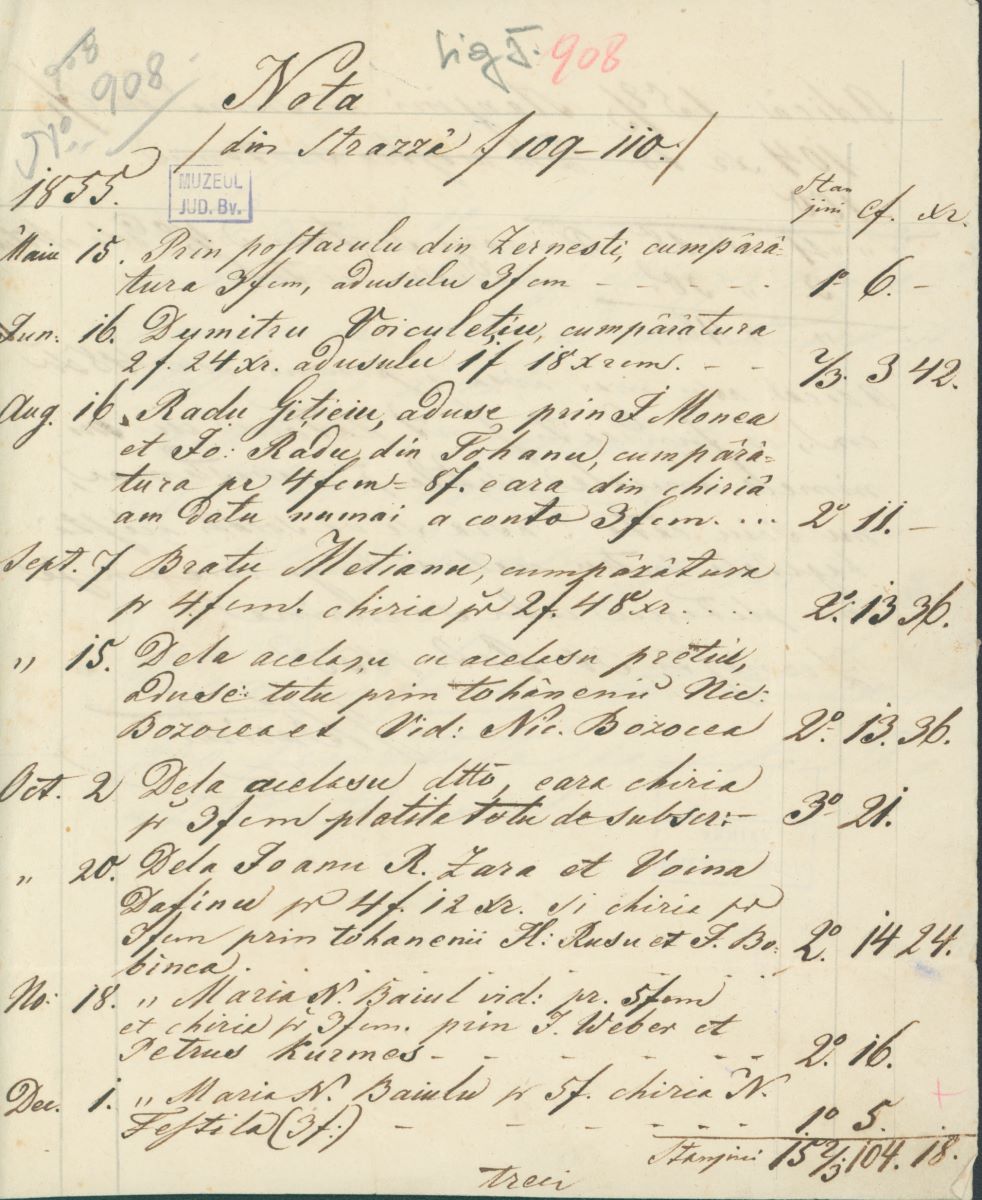 908 908 Lig I. 908
No. Nota
/ din Strazzâ f 109–110. /
1855. MUZEUL Stan
JUD. Bv. jini cf. xr.
Maiu 15. Prin postarulu din Zernesti, cumpârâ-
tura 3fcm, adusulu 3fcm - - - - - 1° 6. –
Jun. 16. Dumitru Voiculețiu, cumpârâtura
2f. 24xr. adusulu 1f 18xrcm. - - 2/3. 3 42.
Aug. 16. Radu Gițieiu, aduse prin I Monea
et Io: Radu din Tohanu, cumpârâ-
tura pr 4fcm = 8f. eara din chiriâ
am datu numai a conto 3fcm. ... 2° 11. –
Sept. 7 Bratu Metianu, cumpârâtura
pr 4.fcm. chiria pr 2f. 48xr. .... 2° 13 36.
„ 15. Dela acelasu cu acelasu pretiu,
aduse totu prin tohânenii Nic:
Bozocea et Vid: Nic. Bozocea 2° 13. 36.
Oct. 2 Dela acelasu dtto, eara chiria
pr 3fcm platita totu de subscr: – 3° 21.
„ 20. Dela Ioanu R. Zara et Voina
Dafinu pr 4f. 12xr. si chiria pr
3fcm prin tohanenii Il: Rusu et I. Bo-
binca. 2° 14 24.
No: 18. „ Maria N. Baiul vid: pr. 5fcm
et chiria pr 3fcm. prin I. Weber et
Petrus Kurmes - - - - - - 2° 16.
Dec. 1. „ Maria N. Baiulu pr 5f. chiria N.
Festila (3f.) - - - - - - 1° 5.
Stanjini 15 2/3 104. 18.
treci